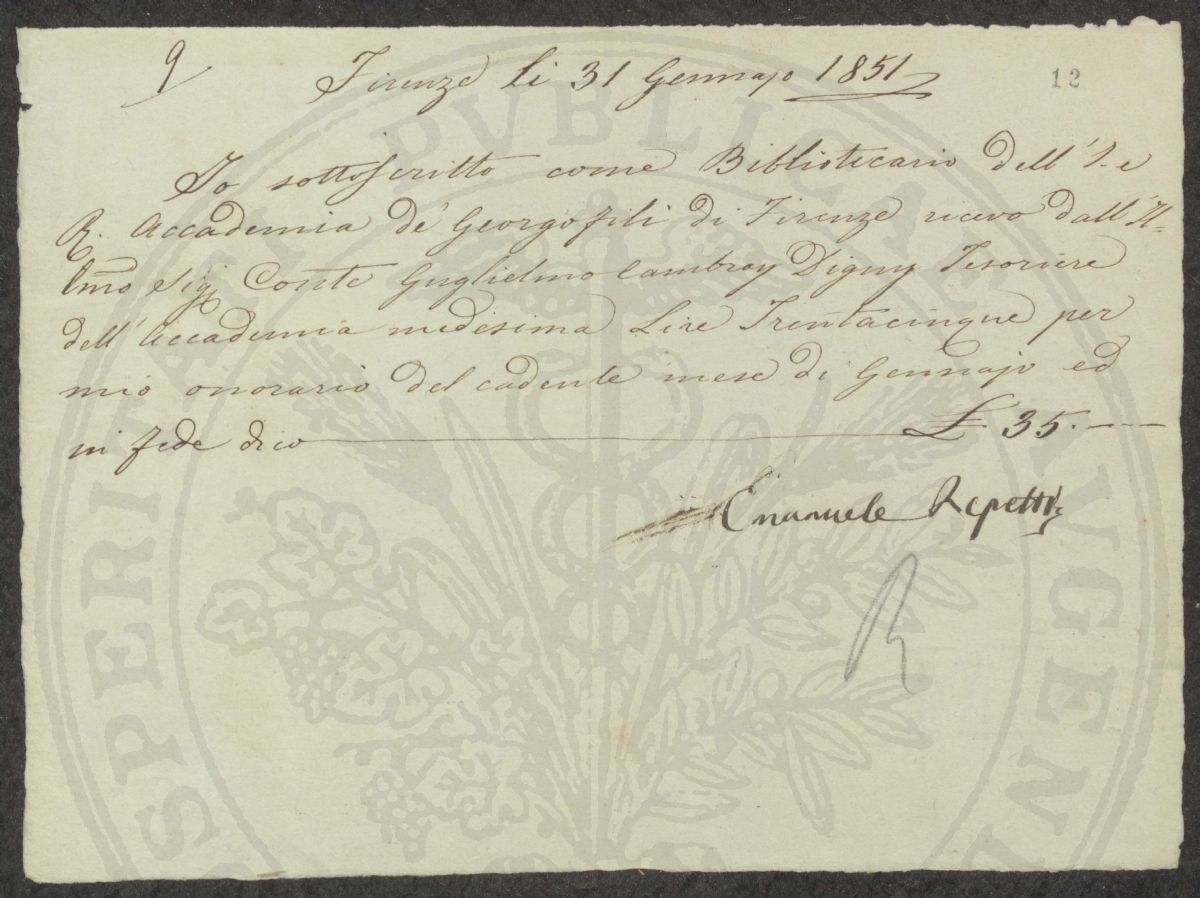 9
Firenze li 31 Gennajo 1851
12
Io sottoscritto come Bibliotecario dell'I. e
R. Accademia de' Georgofili di Firenze ricevo dall'Il-
lmo Sig. Conte Guglielmo Cambray Digny Tesoriere
dell'Accademia medesima Lire Trentacinque per
mio onorario del cadente mese di Gennajo ed
in fede dico £. 35.
Emanuele Repetti
R
PROSPERITATI PVBLICAE AVGENDAE